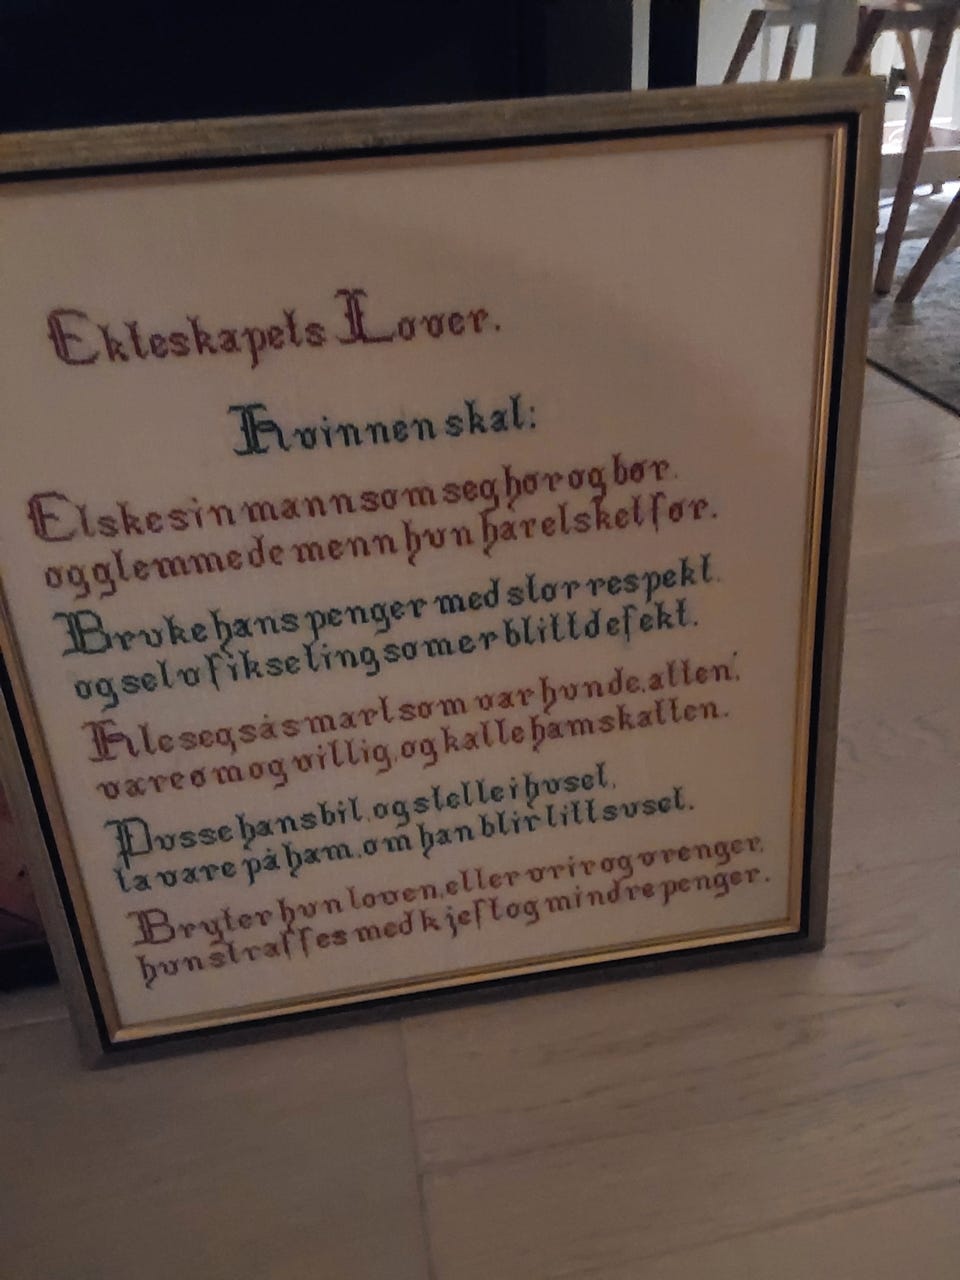 Ekteskapets Lover.
Kvinnen skal:
Elske sin mann som seg hør og bør.
og glemme de menn hun har elsket før.
Bruke hans penger med stor respekt.
og selv fikse ting som er blitt defekt.
Kle seg så smart som var hun de. atten'.
være øm og villig, og kalle ham skatten.
Pusse hans bil, og stelle i huset,
ta vare på ham, om han blir litt suset.
Bryter hun loven, eller vrir og vrenger,
hun straffes med kjeft og mindre penger.